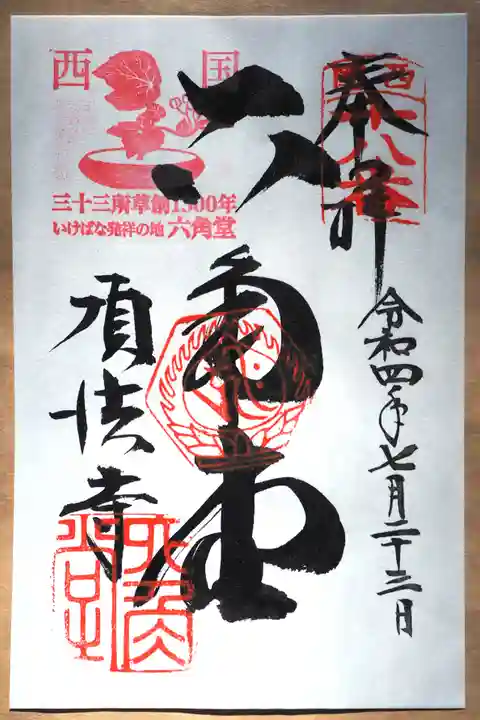 奉拝
西国十八番
令和四年七月二十三日
六角堂
頂法寺
西国
三十三所草創1300年
いけばな発祥の地 六角堂
六角堂